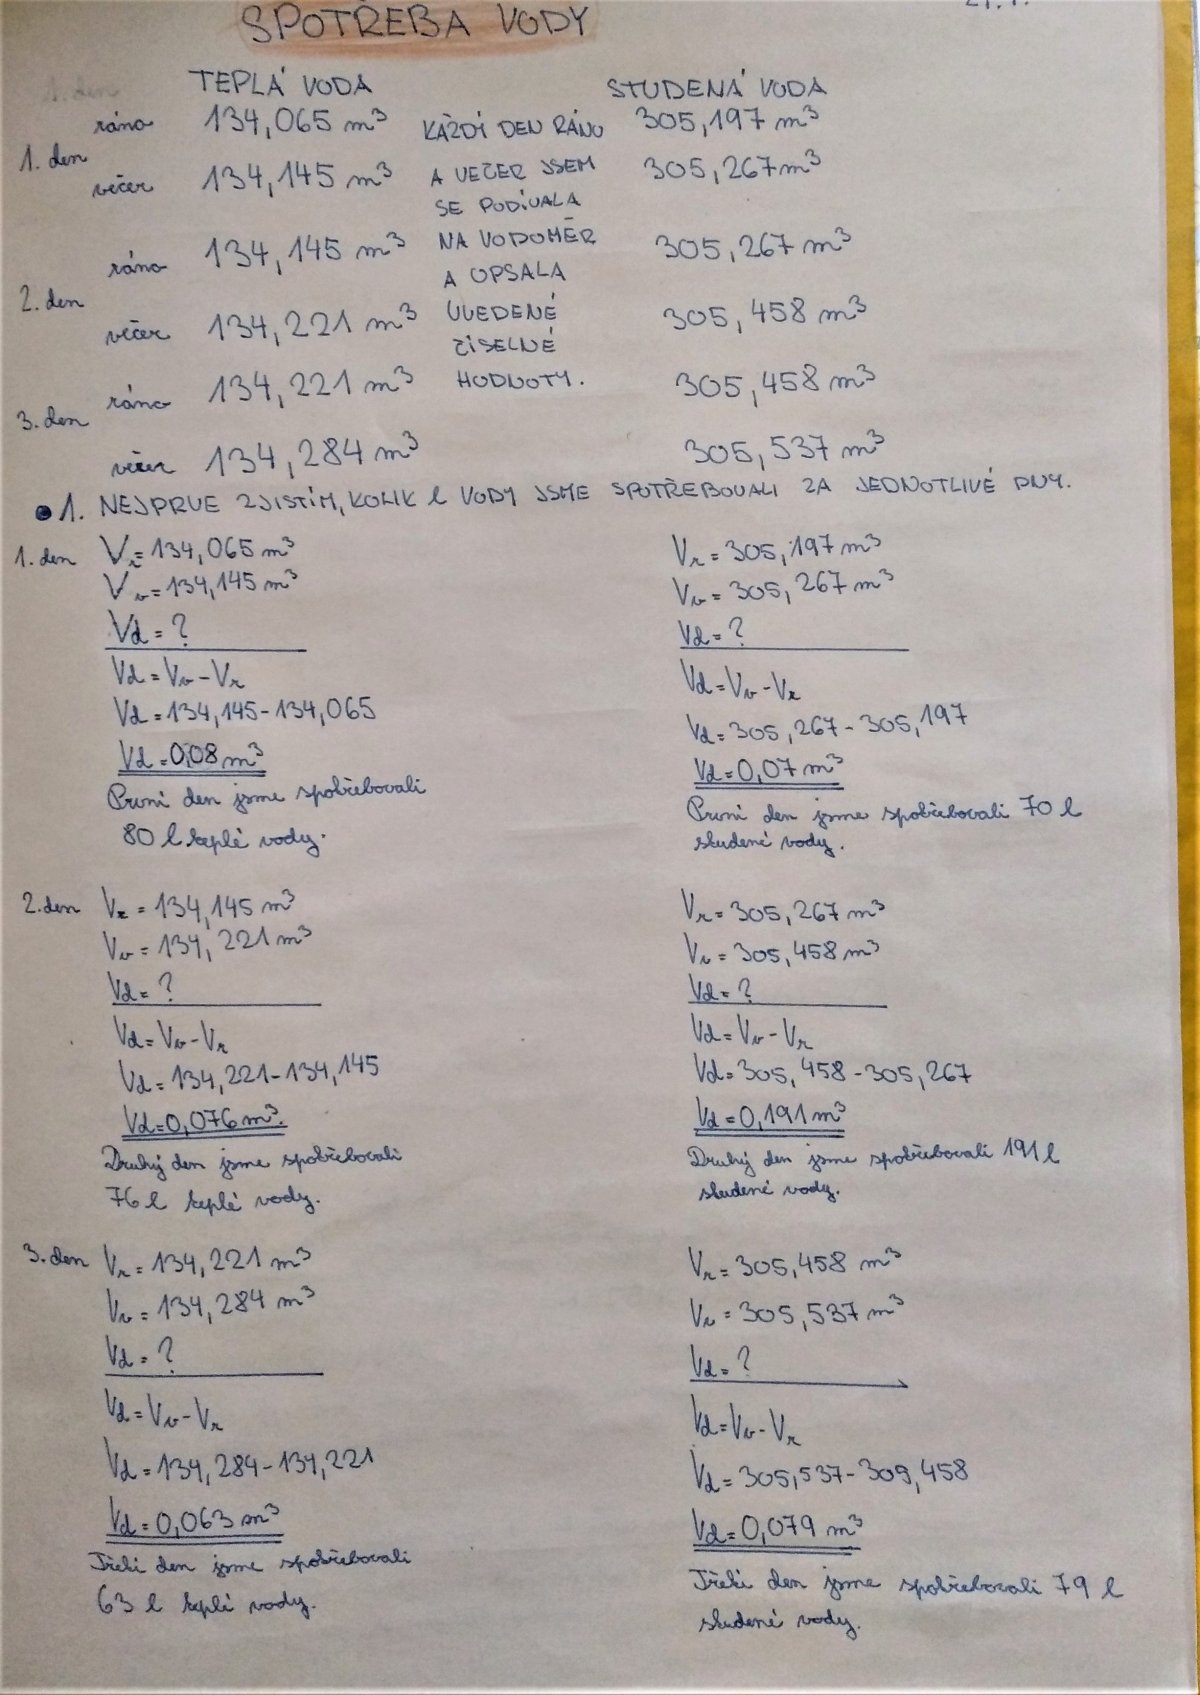 SPOTŘEBA VODY
TEPLÁ VODA
STUDENÁ VODA
1. den
ráno 134,065 m³
večer 134,145 m³
2. den
ráno 134,145 m³
večer 134,221 m³
3. den
ráno 134,221 m³
večer 134,284 m³
KAŽDÍ DEN RÁNO
A VEČER JSEM
SE PODÍVALA
NA VODOMĚR
A OPSALA
UVEDENÉ
ČÍSELNÉ
HODNOTY.
305,197 m³
305,267 m³
305,267 m³
305,458 m³
305,458 m³
305,537 m³
1. NEJPRVE ZJISTÍM, KOLIK l VODY JSME SPOTŘEBOVALI ZA JEDNOTLIVÉ DNY.
1. den Vr = 134,065 m³
Vv = 134,145 m³
Vd = ?
Vd = Vv - Vr
Vd = 134,145 - 134,065
Vd = 0,08 m³
První den jsme spotřebovali
80 l teplé vody.
Vr = 305,197 m³
Vv = 305,267 m³
Vd = ?
Vd = Vv - Vr
Vd = 305,267 - 305,197
Vd = 0,07 m³
První den jsme spotřebovali 70 l
studené vody.
2. den Vr = 134,145 m³
Vv = 134,221 m³
Vd = ?
Vd = Vv - Vr
Vd = 134,221 - 134,145
Vd = 0,076 m³.
Druhý den jsme spotřebovali
76 l teplé vody.
Vr = 305,267 m³
Vv = 305,458 m³
Vd = ?
Vd = Vv - Vr
Vd = 305,458 - 305,267
Vd = 0,191 m³
Druhý den jsme spotřebovali 191 l
studené vody.
3. den Vr = 134,221 m³
Vv = 134,284 m³
Vd = ?
Vd = Vv - Vr
Vd = 134,284 - 134,221
Vd = 0,063 m³
Třetí den jsme spotřebovali
63 l teplé vody.
Vr = 305,458 m³
Vv = 305,537 m³
Vd = ?
Vd = Vv - Vr
Vd = 305,537 - 305,458
Vd = 0,079 m³
Třetí den jsme spotřebovali 79 l
studené vody.